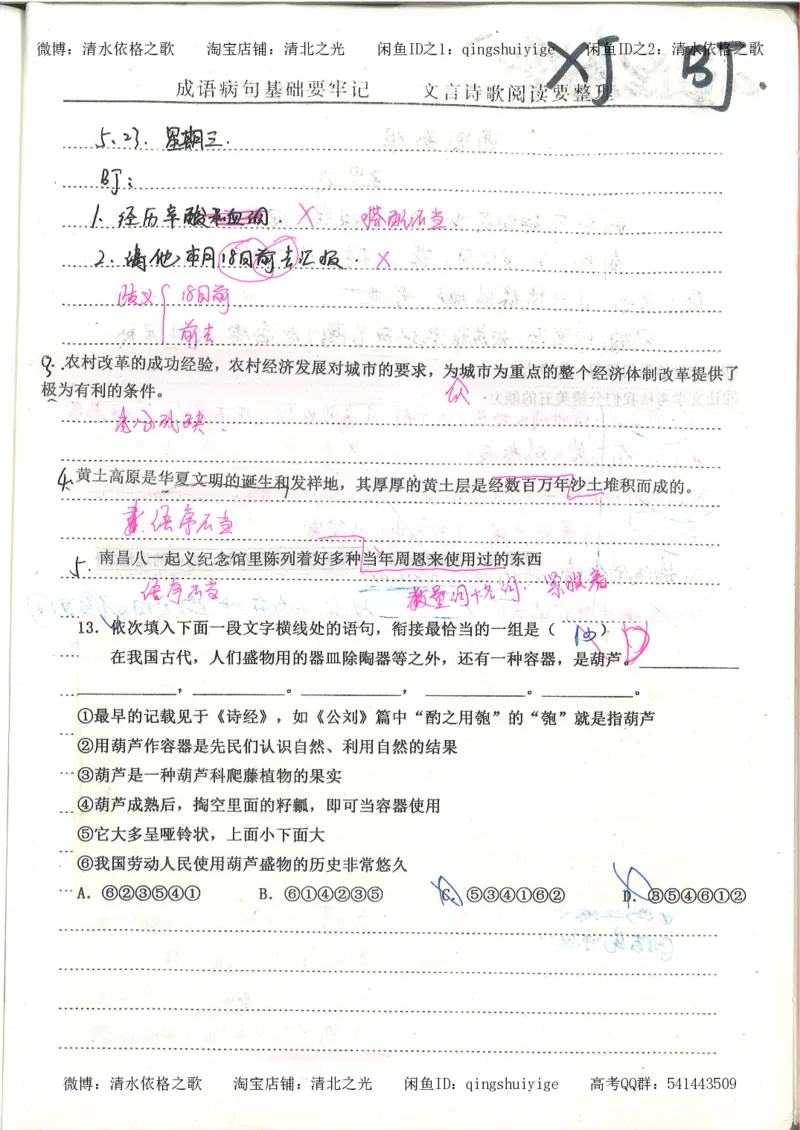 微博：清水依格之歌 淘宝店铺：清北之光 闲鱼ID之1：qingshuiyige 闲鱼ID之2：清水依格之歌
XJ BJ.
成语病句基础要牢记 文言诗歌阅读要整理
5.23. 星期三.
BJ：
1. 经历辛酸和血泪. × 搭配不当.
2. 请他本月18日前去汇报. ×
歧义 18日前
前去
3. 农村改革的成功经验，农村经济发展对城市的要求，为城市为重点的整个经济体制改革提供了
极为有利的条件。
以
成分残缺.
4. 黄土高原是华夏文明的诞生和发祥地，其厚厚的黄土层是经数百万年沙土堆积而成的。
语序不当
5. 南昌八一起义纪念馆里陈列着好多种当年周恩来使用过的东西
语序不当 数量词+名词 紧收着
13. 依次填入下面一段文字横线处的语句，衔接最恰当的一组是（ ） D
在我国古代，人们盛物用的器皿除陶器等之外，还有一种容器，是葫芦。____
____，____。____，____。____。
①最早的记载见于《诗经》，如《公刘》篇中“酌之用匏”的“匏”就是指葫芦
②用葫芦作容器是先民们认识自然、利用自然的结果
③葫芦是一种葫芦科爬藤植物的果实
④葫芦成熟后，掏空里面的籽瓤，即可当容器使用
⑤它大多呈哑铃状，上面小下面大
⑥我国劳动人民使用葫芦盛物的历史非常悠久
A. ⑥②③⑤④① B. ⑥①④②③⑤ C. ⑤③④①⑥② D. ③⑤④⑥①②
微博：清水依格之歌 淘宝店铺：清北之光 闲鱼ID：qingshuiyige 高考QQ群：541443509